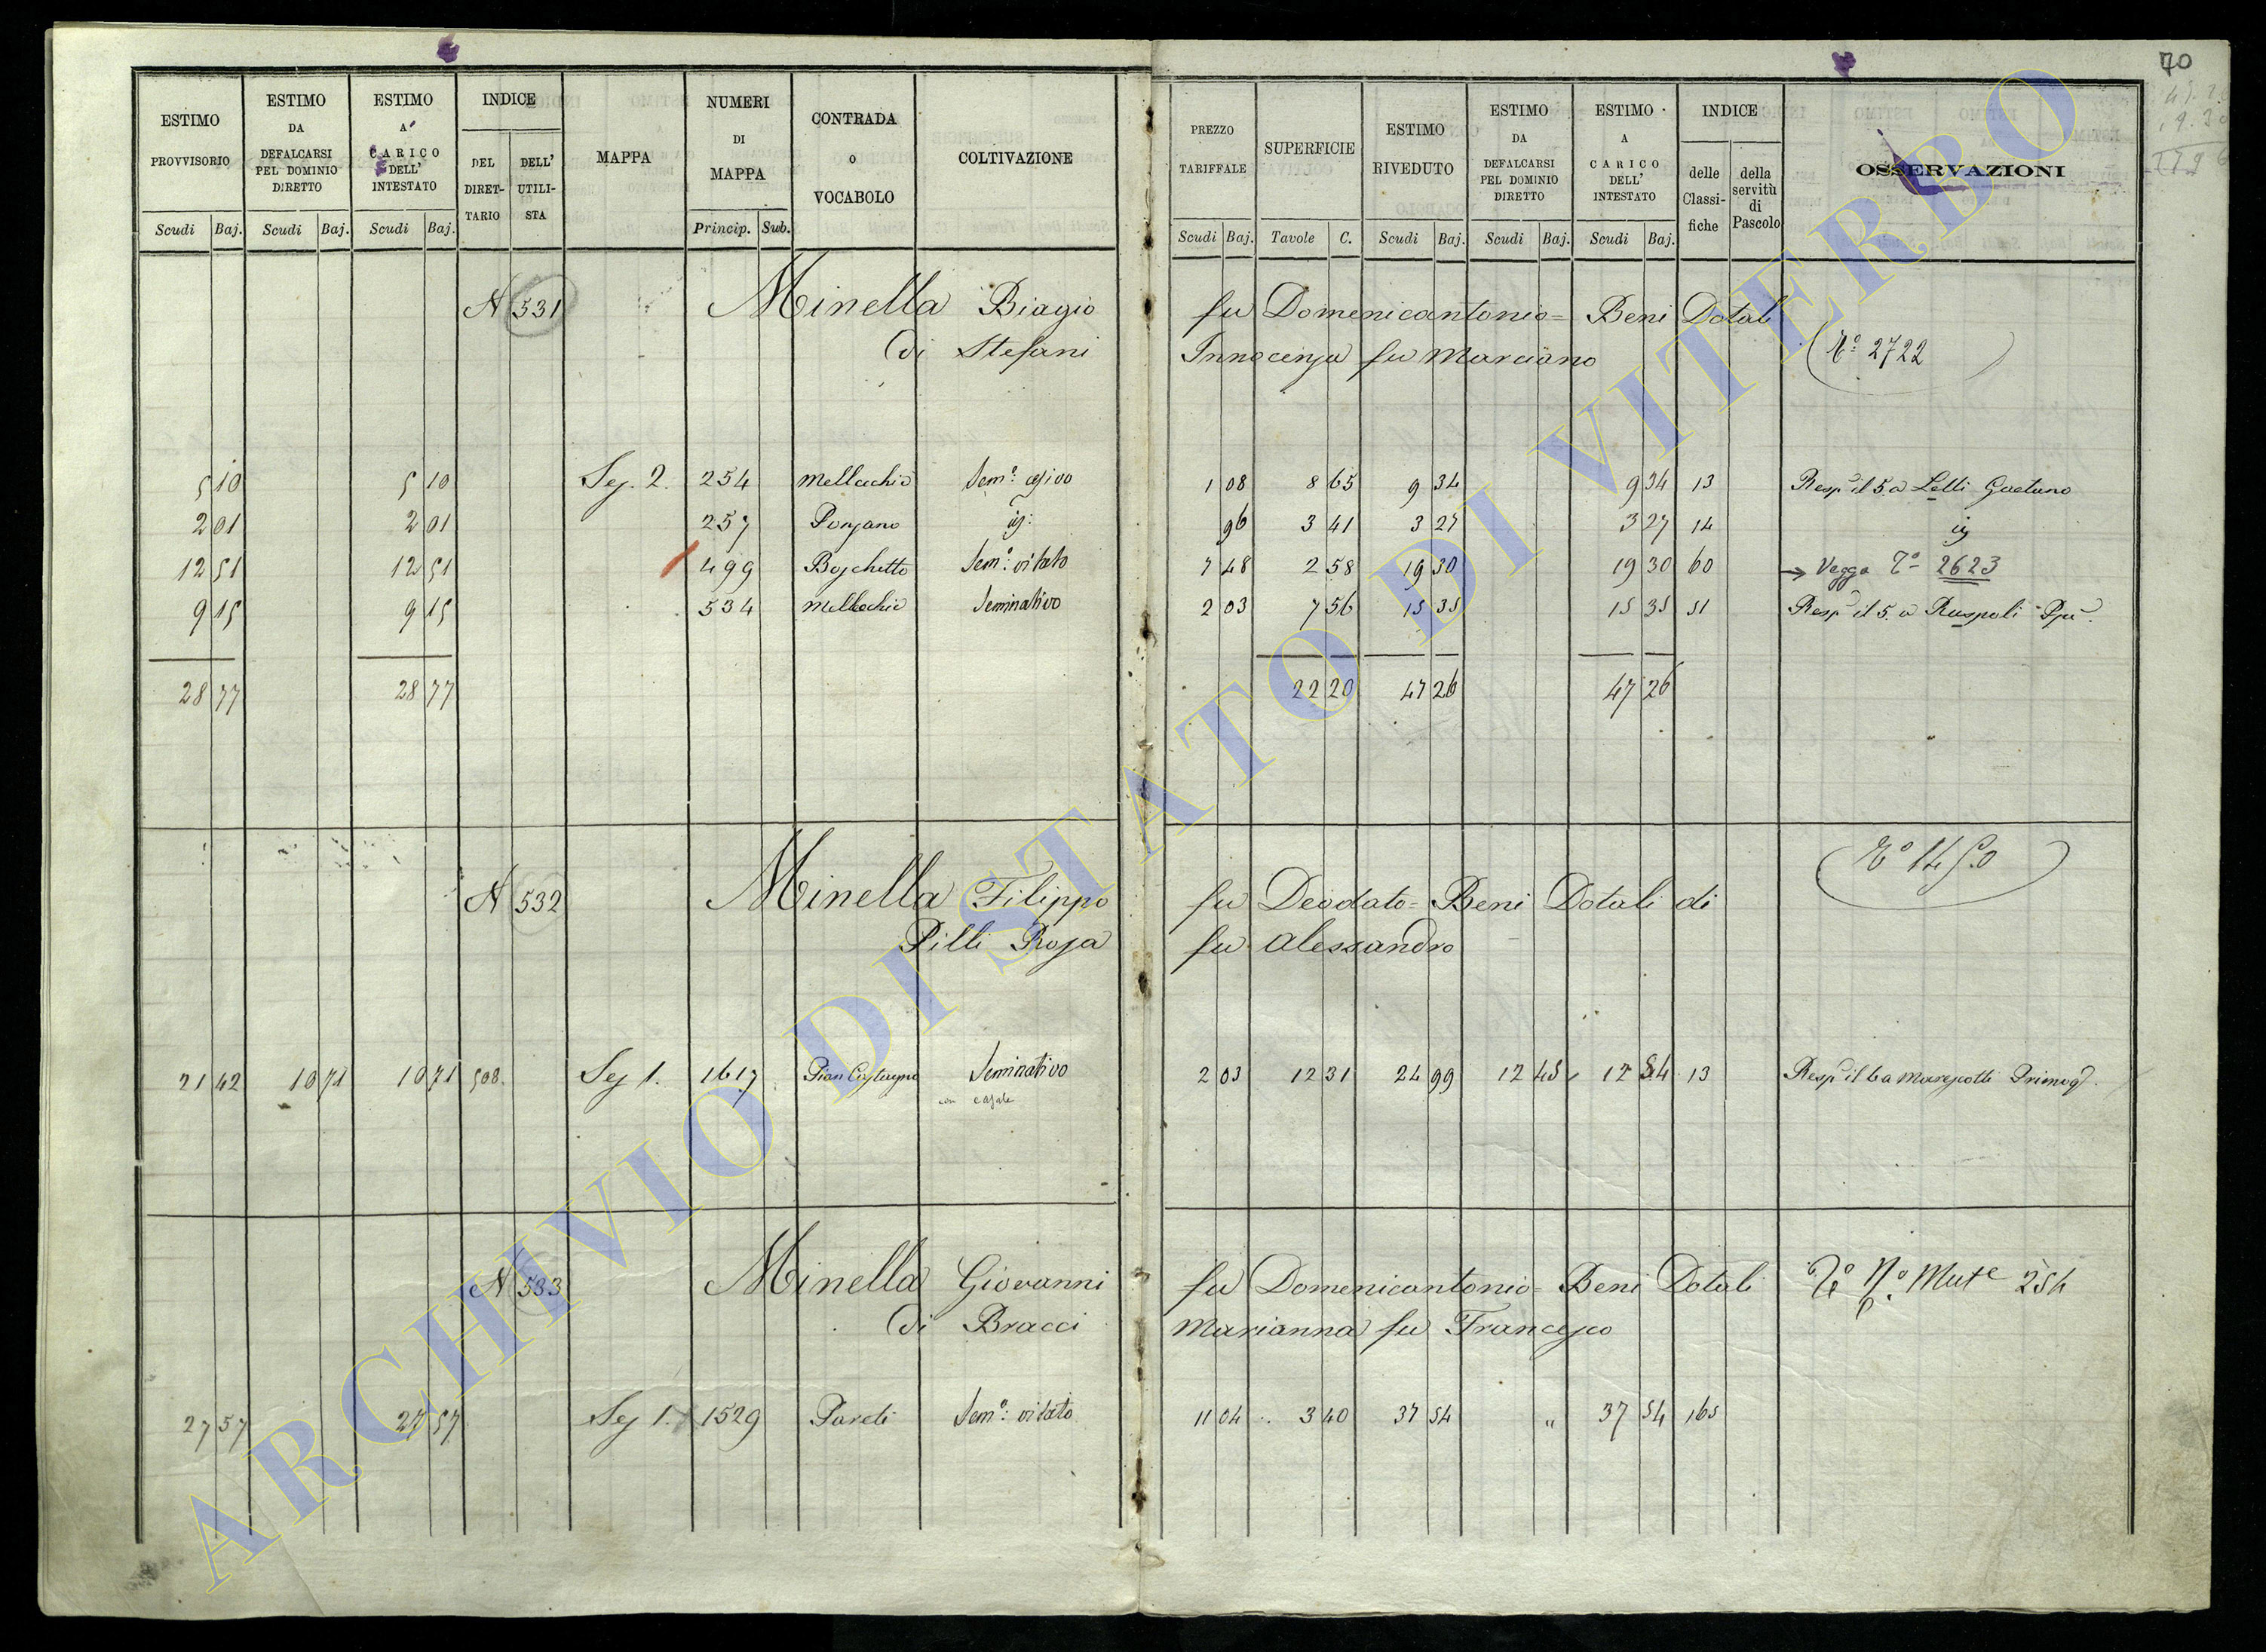 70
ESTIMO PROVVISORIO
Scudi Baj.
ESTIMO DA DEFALCARSI PEL DOMINIO DIRETTO
Scudi Baj.
ESTIMO A CARICO DELL' INTESTATO
Scudi Baj.
INDICE
DEL DIRET-TARIO
DELL' UTILI-STA
MAPPA
NUMERI DI MAPPA
Princip. Sub.
CONTRADA O VOCABOLO
COLTIVAZIONE
PREZZO TARIFFALE
Scudi Baj.
SUPERFICIE
Tavole C.
ESTIMO RIVEDUTO
Scudi Baj.
ESTIMO DA DEFALCARSI PEL DOMINIO DIRETTO
Scudi Baj.
ESTIMO A CARICO DELL' INTESTATO
Scudi Baj.
INDICE
delle Classi-fiche
della servitù di Pascolo
OSSERVAZIONI
N 531 Minella Biagio fu Domenicantonio = Beni Dotali
di Stefani Innocenza fu Marciano
2722
5 10 5 10 Sez. 2. 254 Mellecchio Sem.º 1 08 8 65 9 34 9 34 13 Resp. il 5. a Lelli Gaetano
2 01 2 01 257 Ponzano 96 3 41 3 27 3 27 14
12 51 12 51 499 Boschetto Sem.º vitato 7 48 2 58 19 30 19 30 60 Vegga 2623
9 15 9 15 534 Mellecchio Seminativo 2 03 7 56 15 35 15 35 51 Resp. il 5. a Ruspoli
28 77 28 77 22 20 47 26 47 26
N 532 Minella Filippo fu Deodato = Beni Dotali di
Pilli Rosa fu Alessandro
21 42 10 71 10 71 508. Sez 1. 1617 Pian Castagno Seminativo 2 03 12 31 24 99 12 45 12 54 13 Resp. il 6 a Marescotti Primog.
con casale
N 533 Minella Giovanni fu Domenicantonio = Beni Dotali
di Bracci Marianna fu Francesco
27 57 27 57 Sez 1. 1529 Pareti Sem.º vitato 11 04 3 40 37 54 " 37 54 165
ARCHIVIO DI STATO DI VITERBO